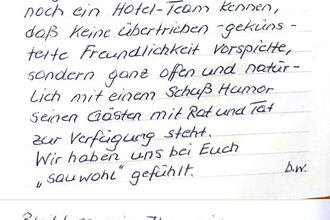 noch ein Hotel-Team kennen,
daß keine übertrieben-geküns-
telte Freundlichkeit vorspielte,
sondern ganz offen und natür-
lich mit einem Schuß Humor
seinen Gästen mit Rat und Tat
zur Verfügung steht.
Wir haben uns bei Euch
„sauwohl" gefühlt. b.w.